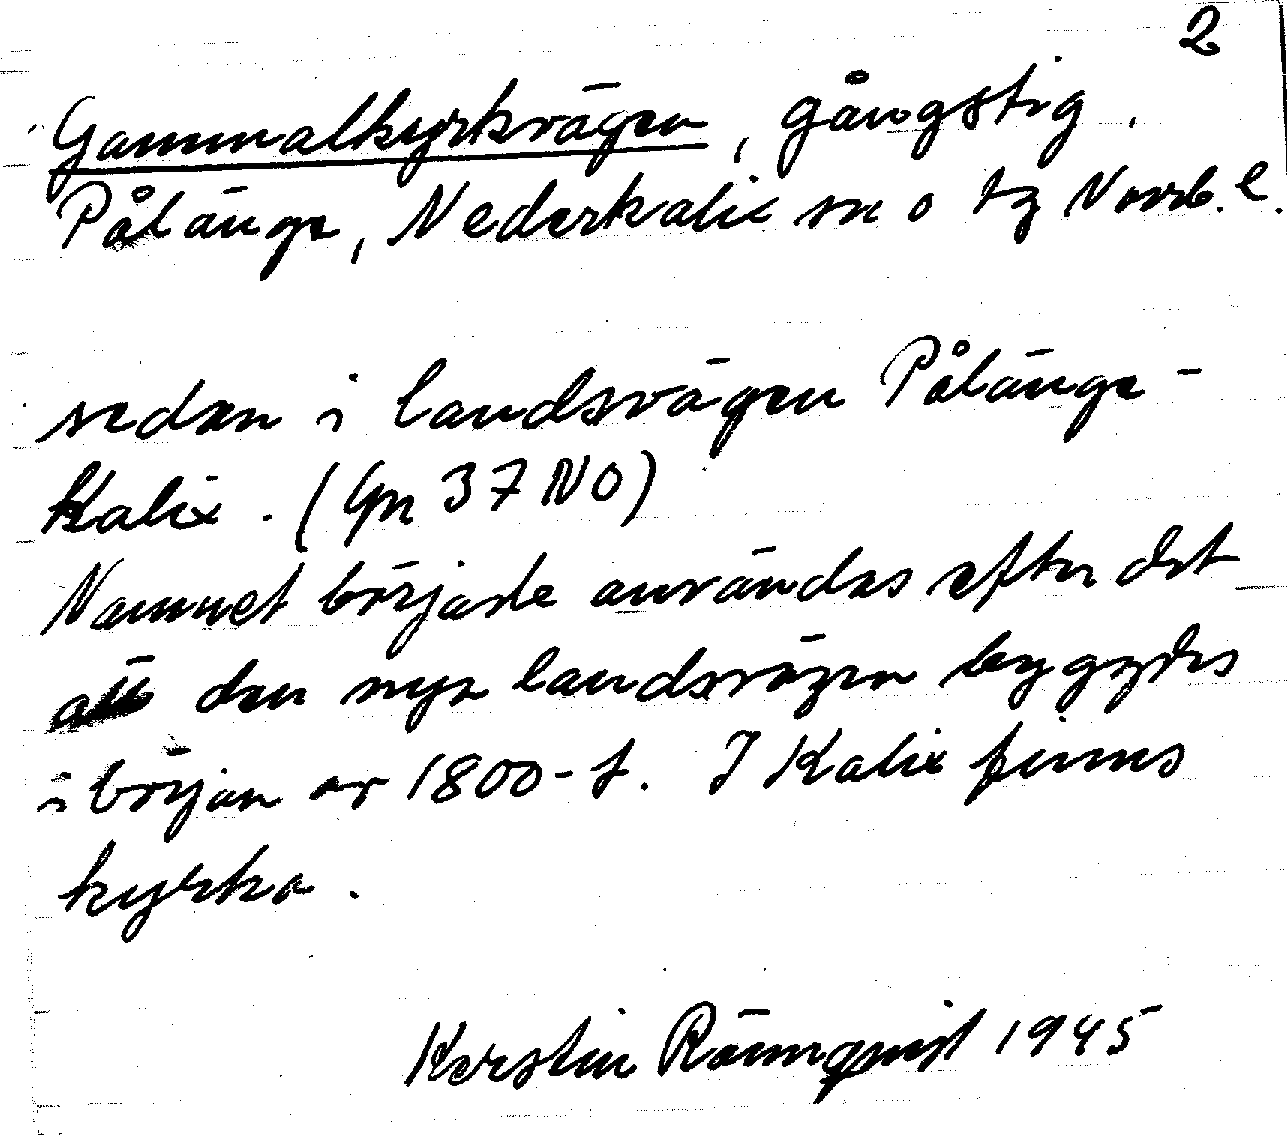 2
Gammalkyrkvägen, gångstig.
Pålänge, Nederkalix sn o tg Norrb. l.
sedan i landsvägen Pålänge -
Kalix. (Gn 37 NO)
Namnet började användas efter det
att den nya landsvägen byggdes
i början av 1800-t. I Kalix finns
kyrka.
Kerstin Rönnqvist 1945